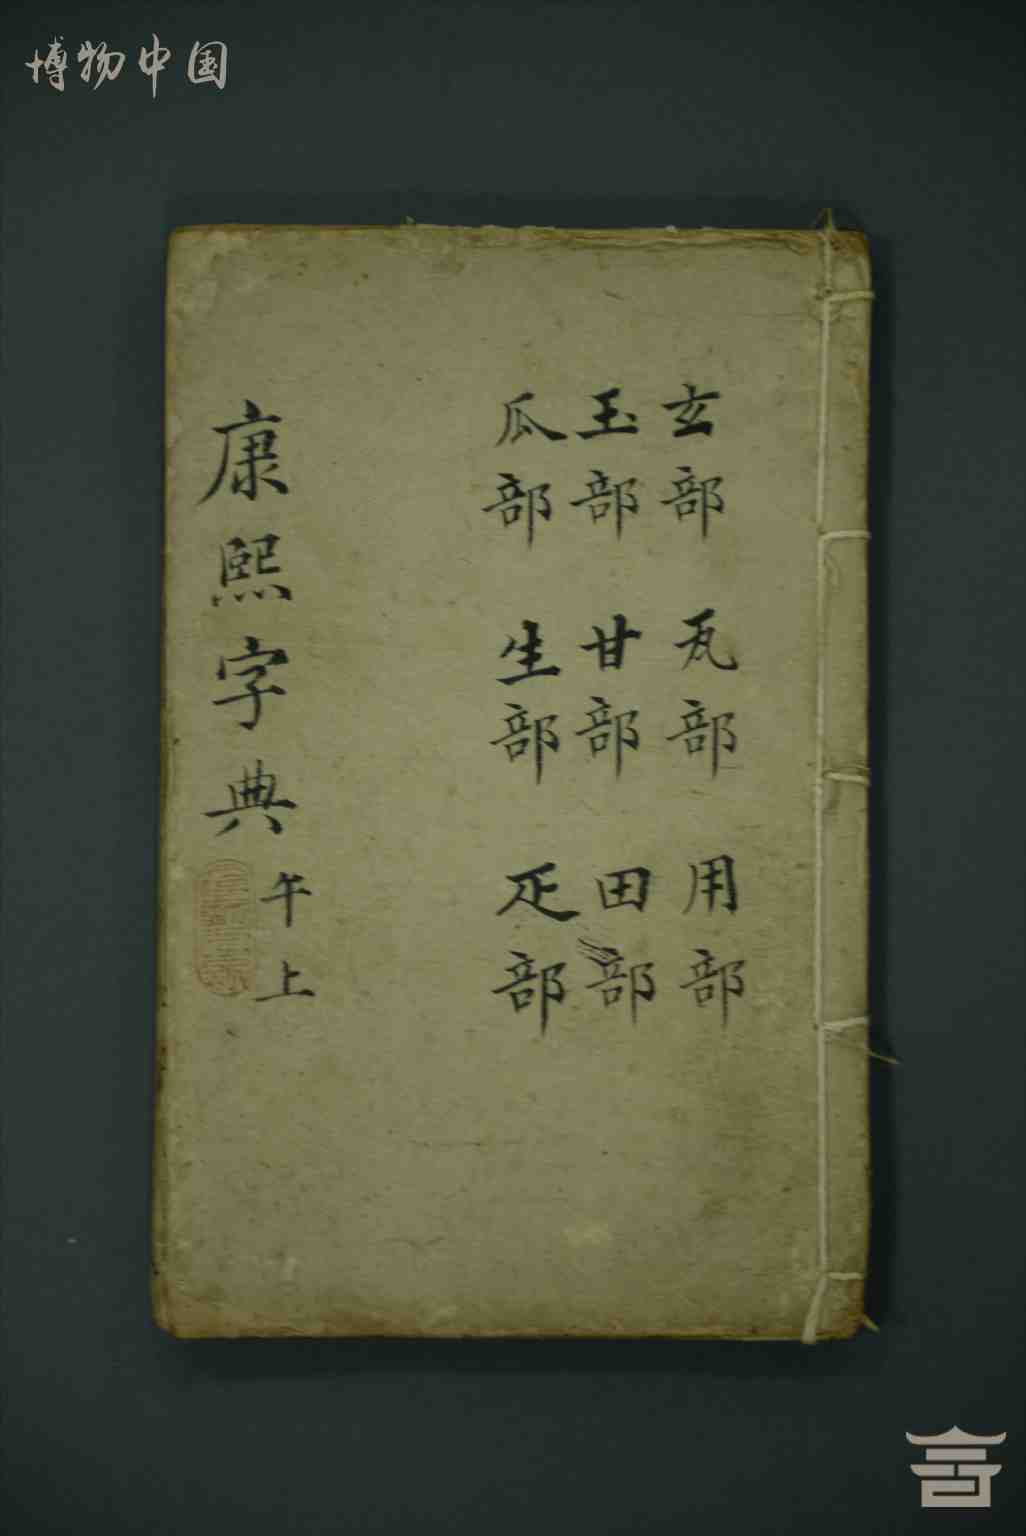 博物中国
玄部 瓦部 用部
玉部 甘部 田部
瓜部 生部 疋部
康熙字典
午上